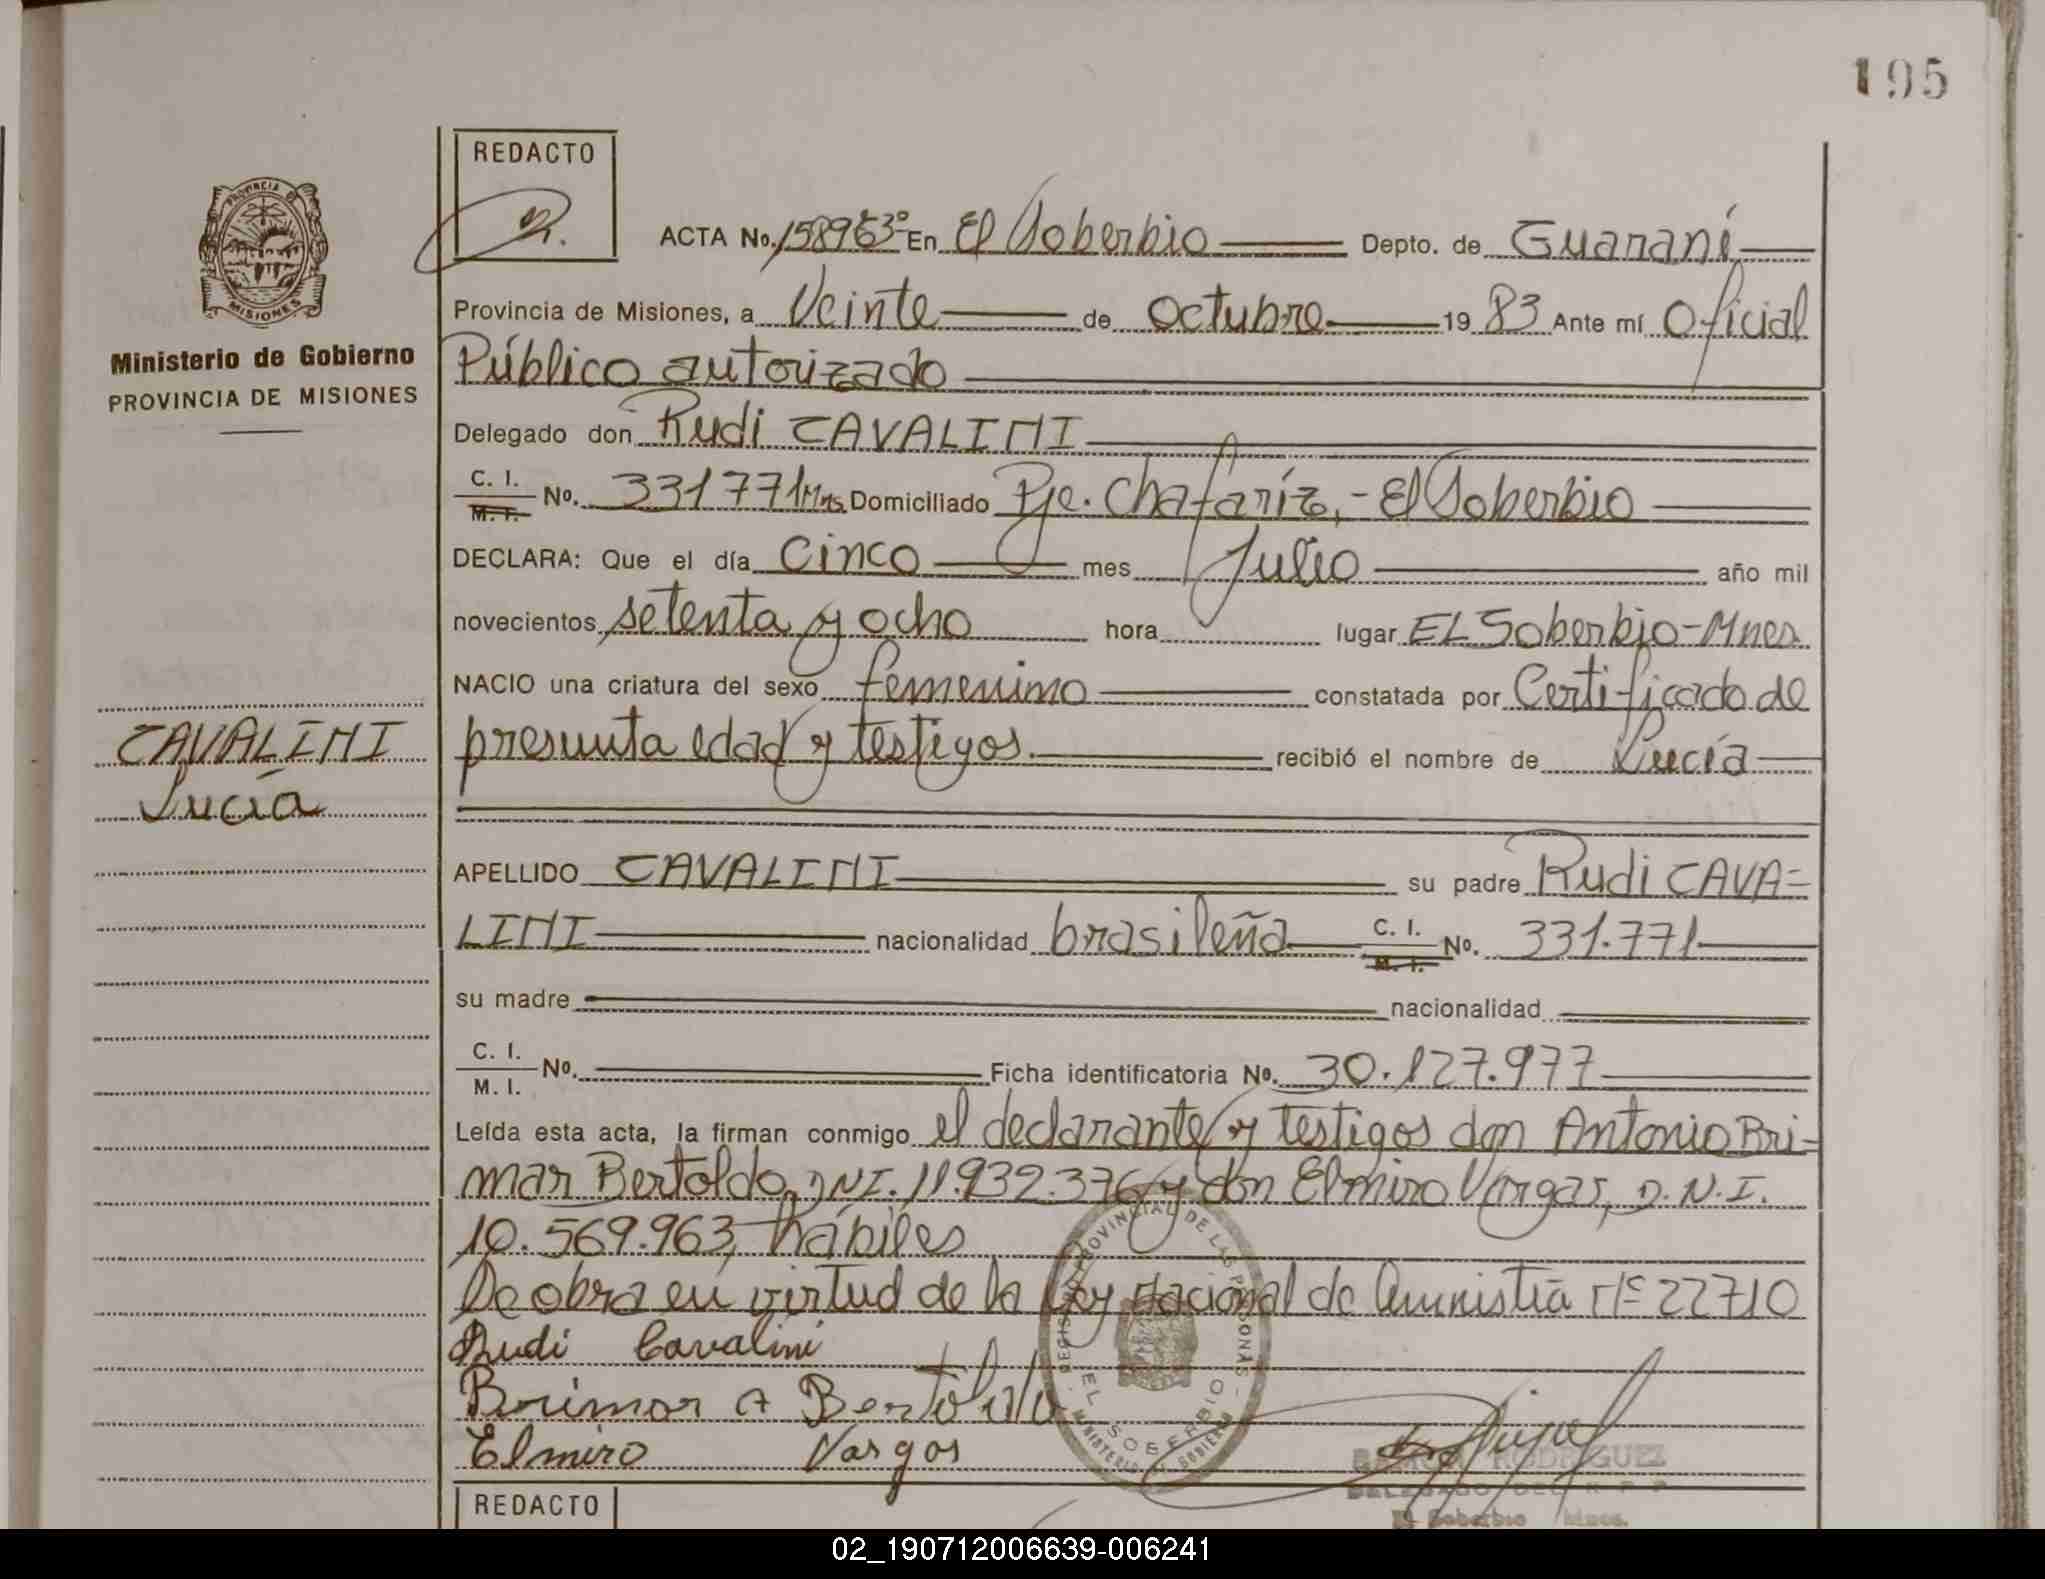 195
REDACTO
PROVINCIA DE
MISIONES
Ministerio de Gobierno
PROVINCIA DE MISIONES
CAVALINI
Lucía
ACTA No. 158963º En El Soberbio Depto. de Guaraní
Provincia de Misiones, a Veinte de octubre 19 83 Ante mí Oficial
Público autorizado
Delegado don Rudi CAVALINI
C. I. M. I. No. 331771 Mns Domiciliado Pje. Chafaríz, - El Soberbio
DECLARA: Que el día cinco mes Julio año mil
novecientos setenta y ocho hora lugar EL Soberbio-Mnes
NACIO una criatura del sexo femenino constatada por Certificado de
presunta edad y testigos recibió el nombre de Lucía
APELLIDO CAVALINI su padre Rudi CAVA=
LINI nacionalidad brasileña C. I. M. I. No. 331.771
su madre nacionalidad
C. I. M. I. No. Ficha identificatoria No. 30.127.977
Leída esta acta, la firman conmigo el declarante y testigos don Antonio Bri-
mar Bertoldo, DNI. 11.932.376 y don Elmiro Vargas, D.N.I.
10.569.963, hábiles
De obra en virtud de la Ley Nacional de Amnistía Nº 22710
Rudi Cavalini
Brimar A Bertoldo
Elmiro Vargas
PROVINCIAL DE LAS PERSONAS
EL SOBERBIO
MINISTERIO DE GOBIERNO
RODRIGUEZ
El Soberbio Mnes.
REDACTO
02_190712006639-006241